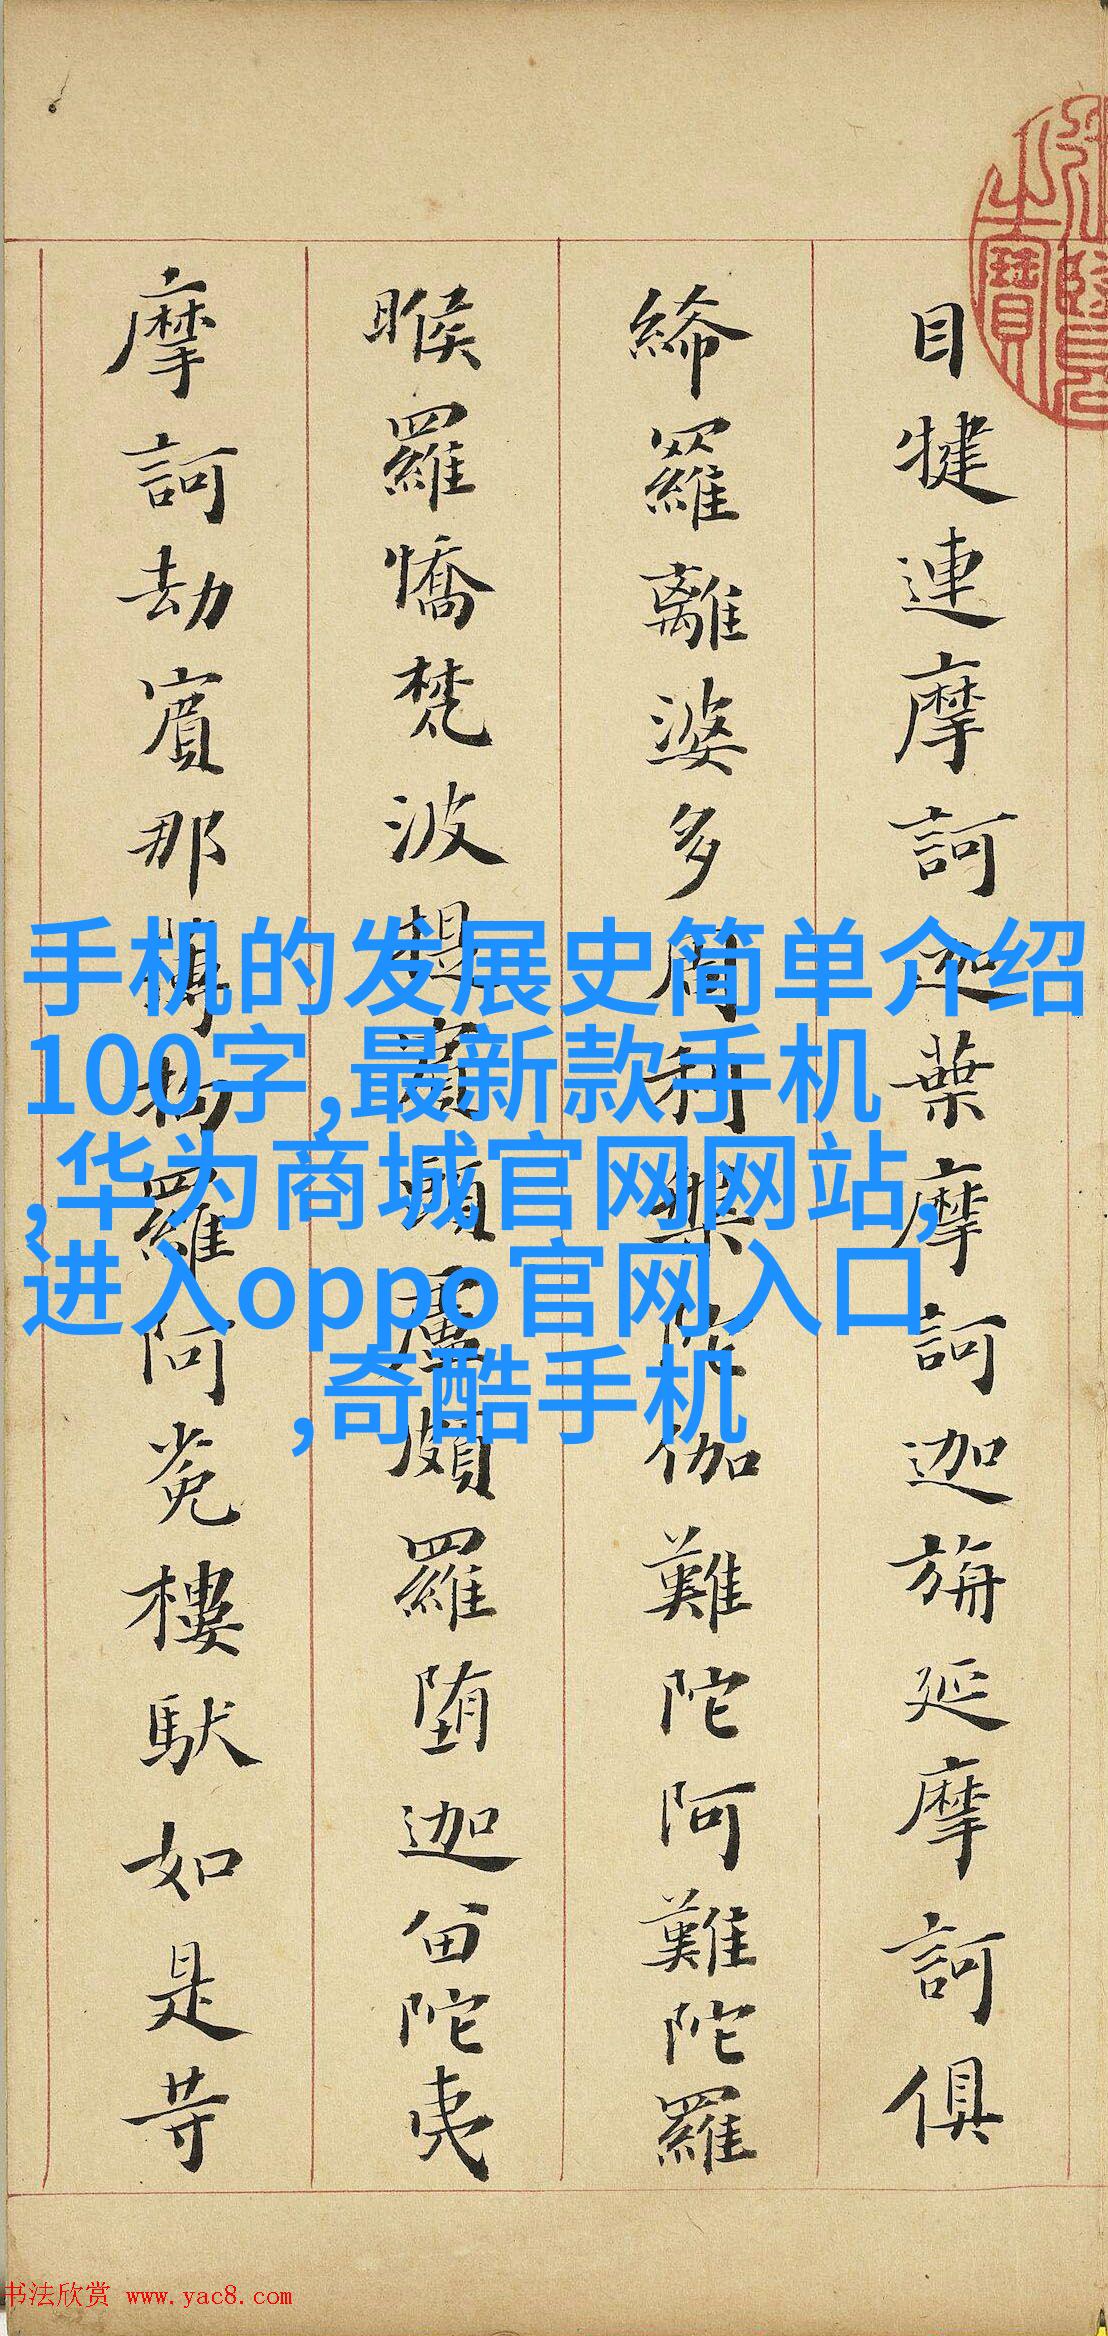 目犍連摩訶迦葉摩訶迦旃延摩訶俱
絺羅離婆多周利槃陀伽難陀阿難陀羅
睺羅憍梵波提賓頭盧頗羅堕迦留陀夷
摩訶劫賓那慱拘羅阿㝹樓馱如是等
手机的发展史简单介绍
100字,最新款手机
,华为商城官网网站,
进入oppo官网入口
,奇酷手机
之寶
书法欣赏 www.yac8.com